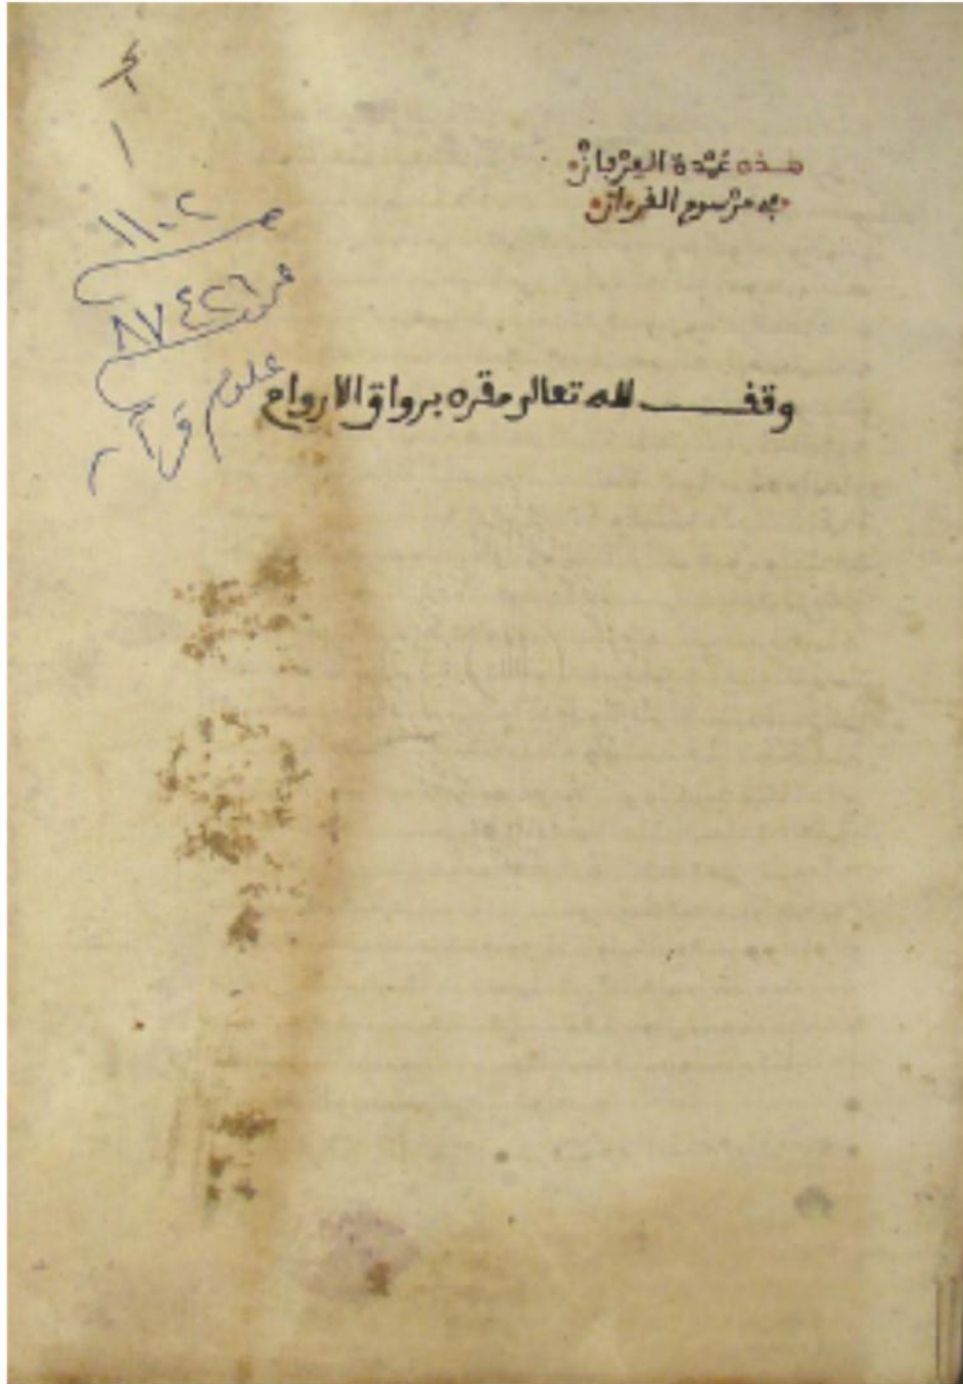 هذه عمدة العرفان
في مرسوم القرءان
وقف لله تعالى مقره برواق الاروام
١
١١٠٢
٨٧٤٢٦
علوم قرآن